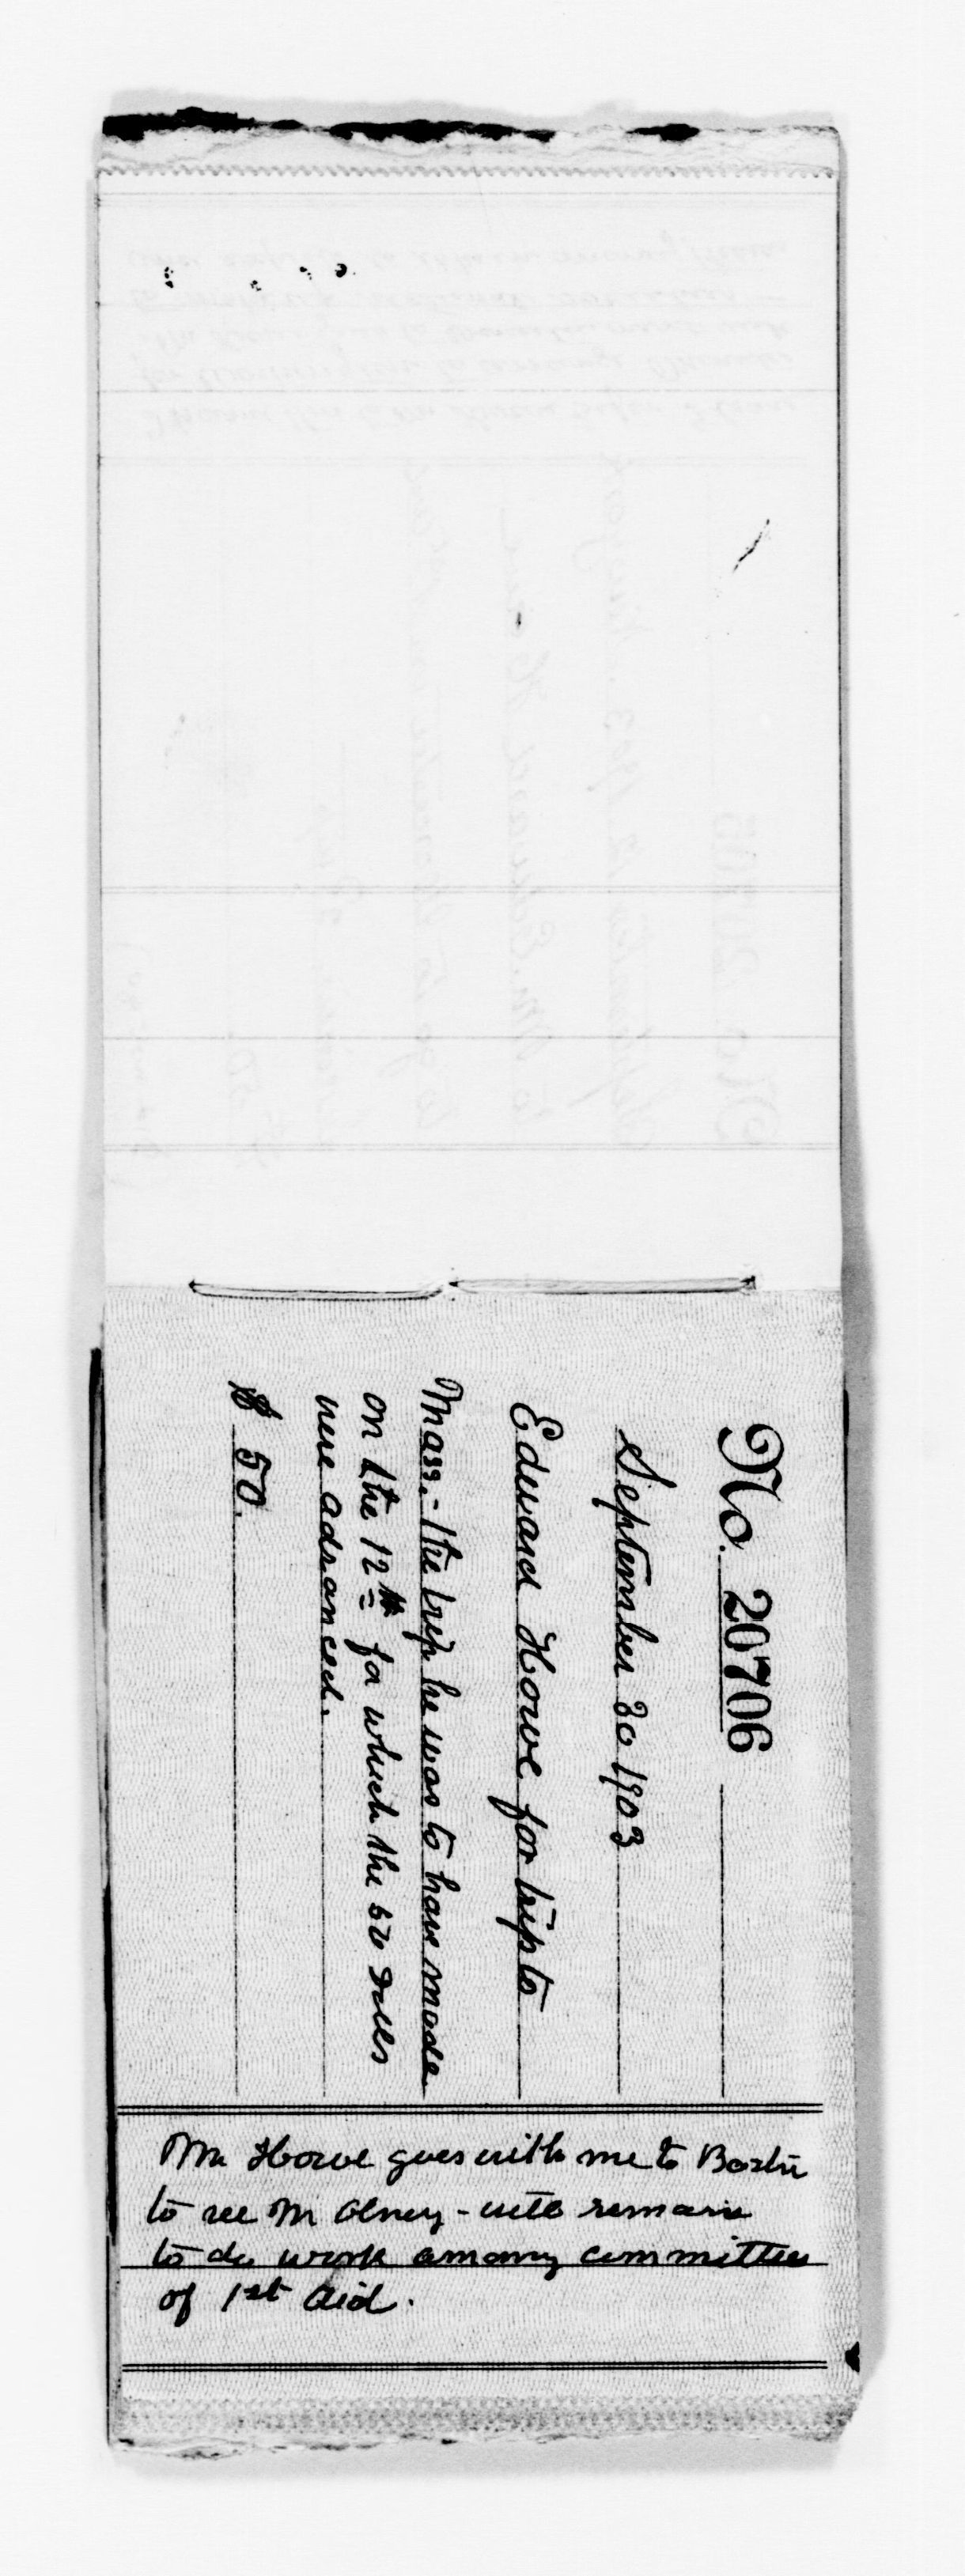 No. 20706
September 30 1903
Edward Howe for trip to
Mass. - the trip he was to have made
on the 12th for which the 50
were advanced.
$ 50.
Mr Howe goes with me to Boston
to see Mr Olney - will remain
to do work among committees
of 1st Aid.